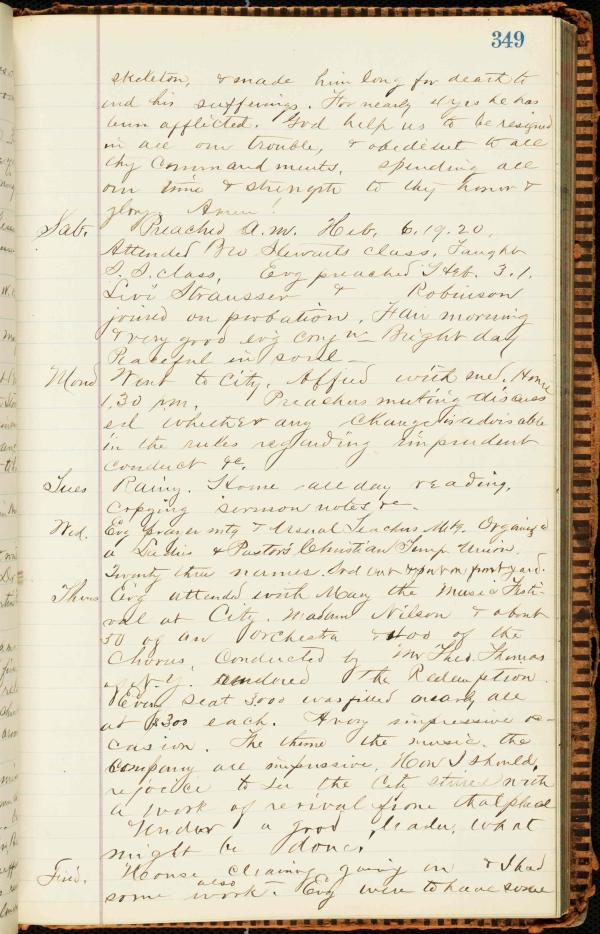 349
skeleton, & made him long for death to
end his sufferings. For nearly 4 yrs he has
been afflicted. God help us to be resigned
in all our trouble, & obedient to all
thy commandments, spending all
our time & strength to thy honor &
glory Amen!
Sab. Preached A.M. Heb. 6.19.20.
Attended Bro Stewarts class, Taught
S.S. class, Evg preached Heb. 3.1.
Levi Strausser & Robinson
joined on probation. Fair morning
& very good evg congn Bright day
Peaceful in soul —
Mond Went to City. with me. Home
1.30 pm. Preachers meeting discuss
ed whether any change is advisable
in the rules regarding imprudent
conduct &c.
Tues Rainy. Home all day reading,
copying sermon notes &c.
Wed. Evg prayer mtg & Usual Teachers Mtg. Organized
a Ladies & Pastors Christian Temp Union.
Twenty three names. Sod cut & put on front yard.
Thurs Evg attended with Mary the Music Festi-
val at City. Madam Nilson & about
50 of an orchestra & 400 of the
Chorus, Conducted by Mr Theo. Thomas
of N.Y. rendered the Redemption.
Every seat 3000 was filled nearly all
at $3.00 each. A very impressive oc-
casion. The theme the music, the
company are impressive. How I should
rejoice to see the City stirred with
a work of revival from that place
Under a good leader, what
might be done.
Frid. House cleaning going on & I had
some work also. Evg were to have some